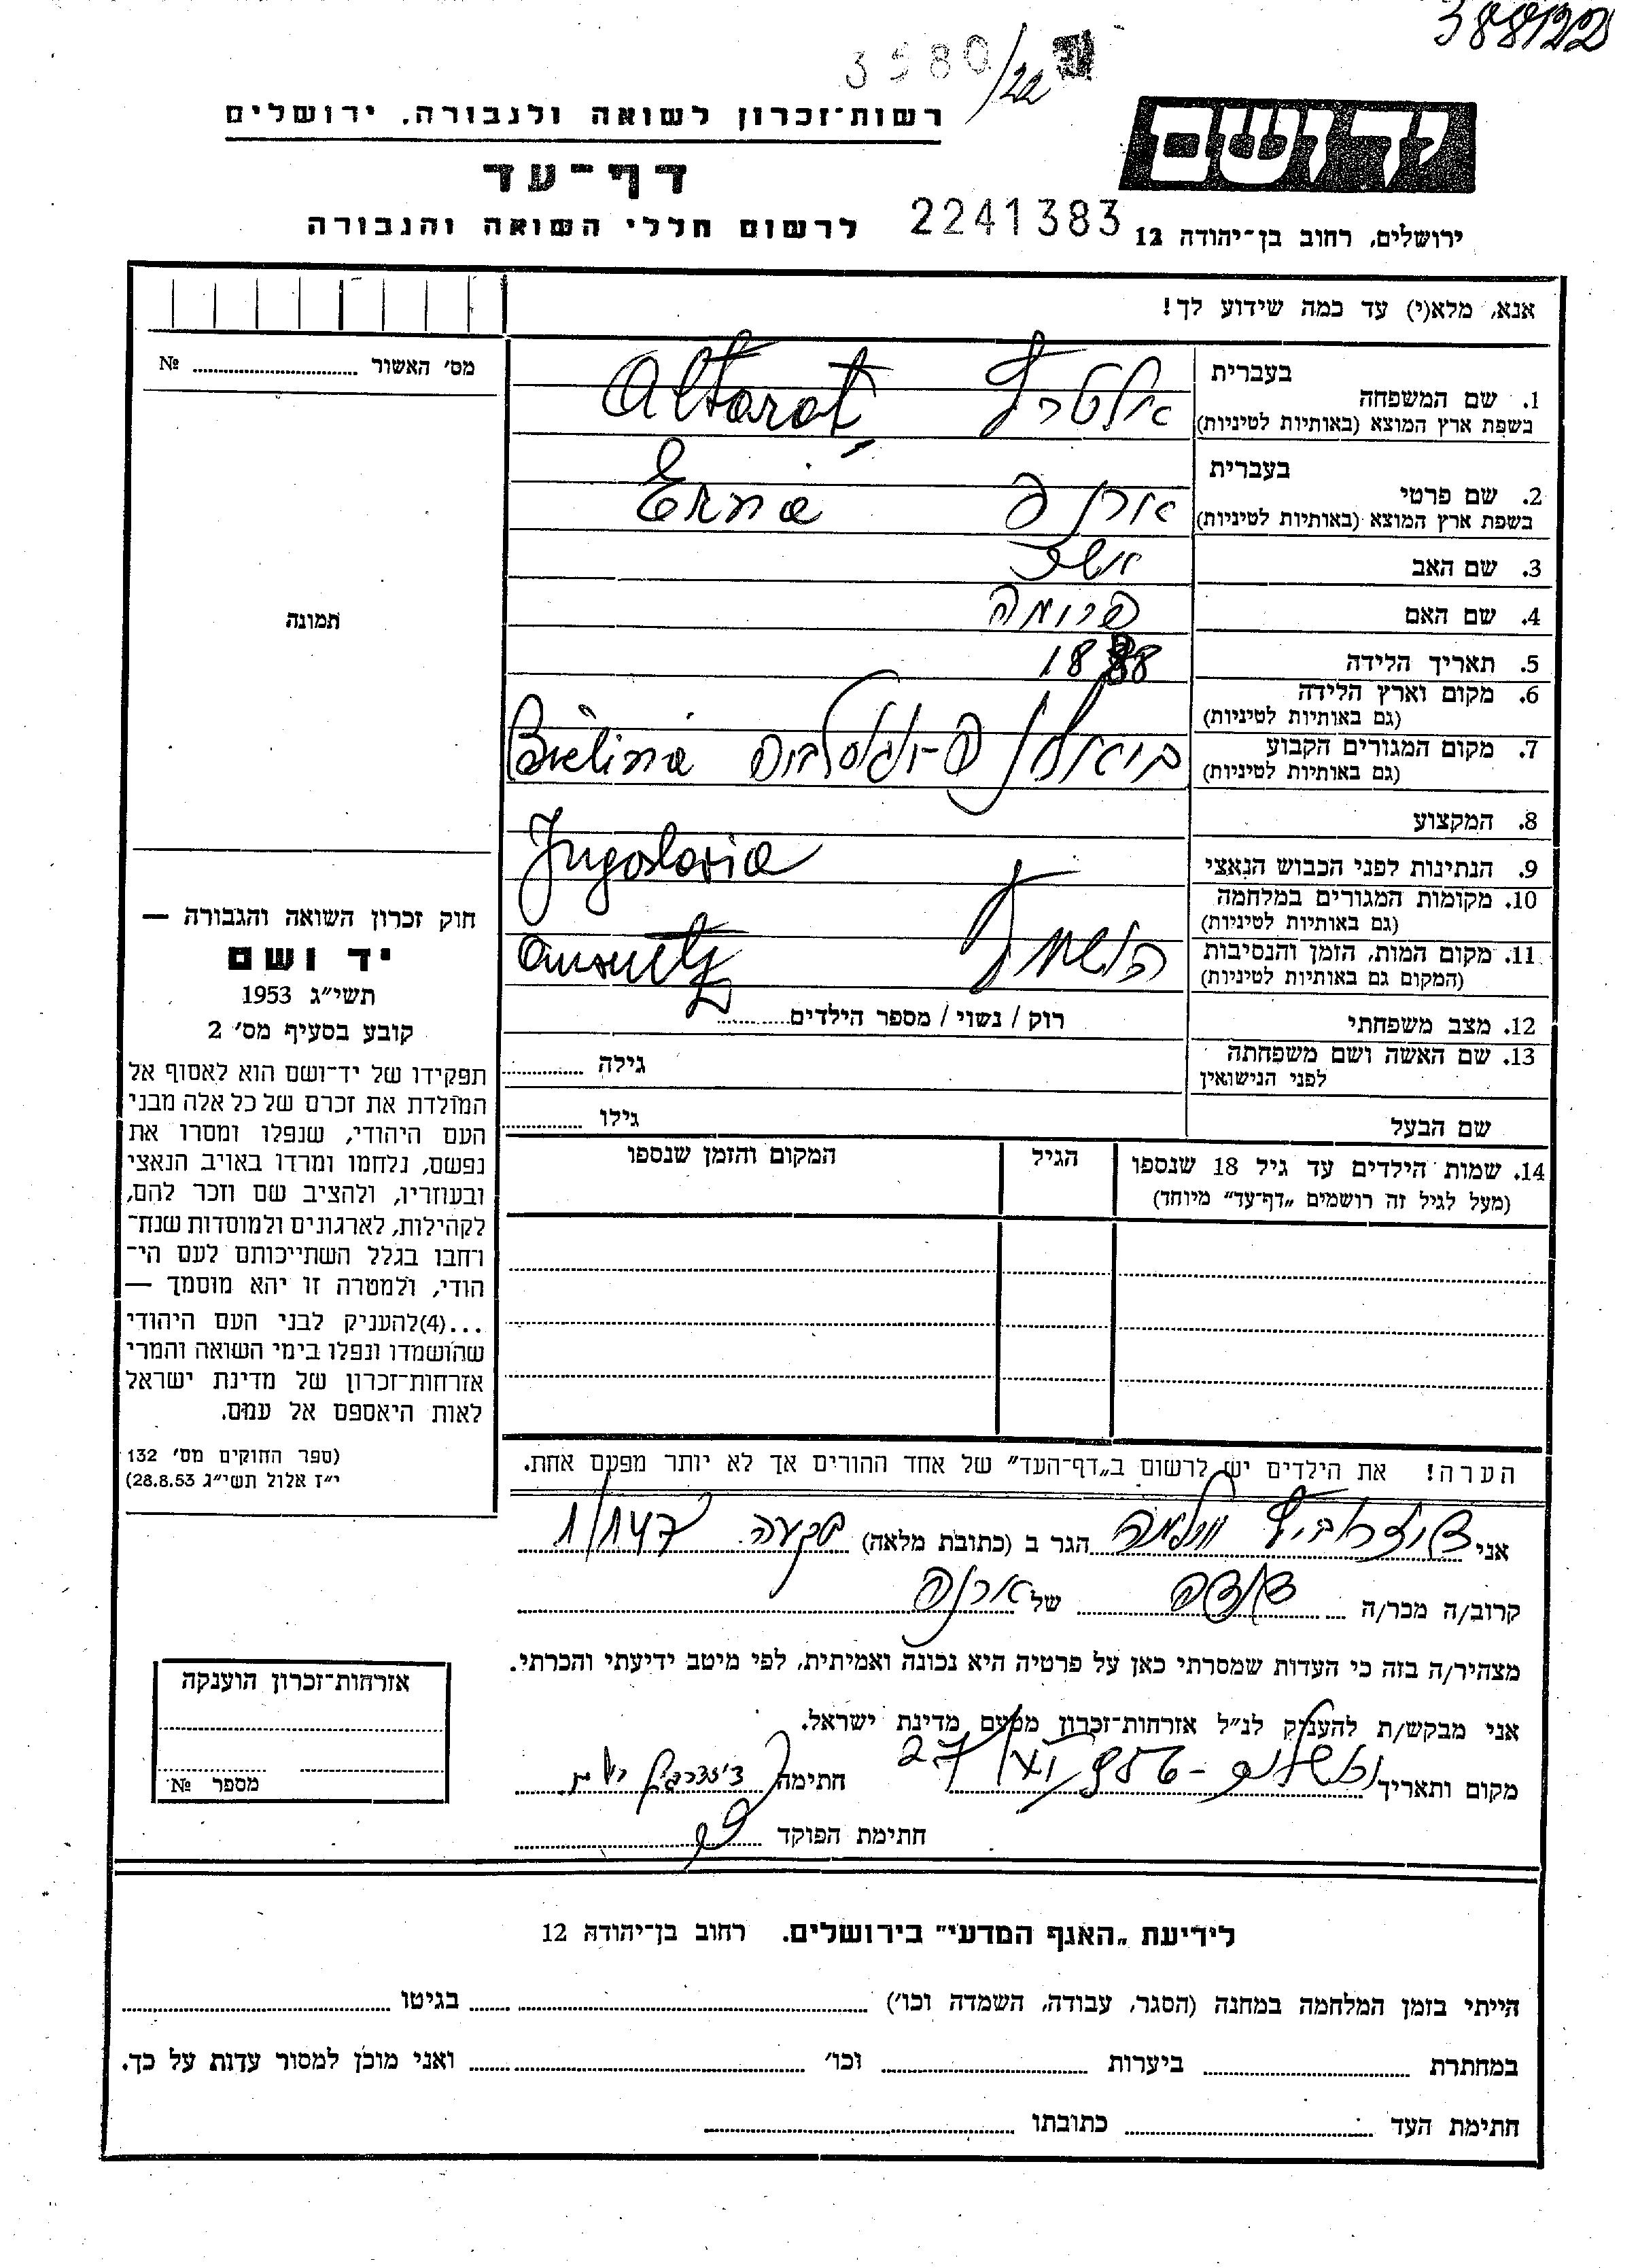 38812D
3580/22
רשות־זכרון לשואה ולגבורה, ירושלים
יד ושם
דף־עד
לרשום חללי השואה והגבורה
2241383
ירושלים, רחוב בן־יהודה 12
אנא, מלא(י) עד כמה שידוע לך!
מס׳ האשור № 
1. שם המשפחה
בעברית
בשפת ארץ המוצא (באותיות לטיניות)
אלטרץ Altarać
2. שם פרטי
בעברית
בשפת ארץ המוצא (באותיות לטיניות)
ארנה Erna
3. שם האב
4. שם האם
5. תאריך הלידה 1888
6. מקום וארץ הלידה
(גם באותיות לטיניות)
7. מקום המגורים הקבוע
(גם באותיות לטיניות)
Bielina
8. המקצוע
9. הנתינות לפני הכבוש הנאצי
Jugoslavia
10. מקומות המגורים במלחמה
(גם באותיות לטיניות)
11. מקום המות, הזמן והנסיבות
(המקום גם באותיות לטיניות)
12. מצב משפחתי רוק / נשוי / מספר הילדים
13. שם האשה ושם משפחתה
לפני הנישואין
גילה
שם הבעל גילו
14. שמות הילדים עד גיל 18 שנספו
(מעל לגיל זה רושמים „דף־עד״ מיוחד)
הגיל
המקום והזמן שנספו
תמונה
חוק זכרון השואה והגבורה —
יד ושם
תשי״ג 1953
קובע בסעיף מס׳ 2
תפקידו של יד־ושם הוא לאסוף אל
המולדת את זכרם של כל אלה מבני
העם היהודי, שנפלו ומסרו את
נפשם, נלחמו ומרדו באויב הנאצי
ובעוזריו, ולהציב שם וזכר להם,
לקהילות, לארגונים ולמוסדות שנח־
רחבו בגלל השתייכותם לעם הי־
הודי, ולמטרה זו יהא מוסמך —
...(4)להעניק לבני העם היהודי
שהושמדו ונפלו בימי השואה והמרי
אזרחות־זכרון של מדינת ישראל
לאות היאספם אל עמם.
(ספר החוקים מס׳ 132
י״ז אלול תשי״ג 28.8.53)
הערה! את הילדים יש לרשום ב„דף־העד״ של אחד ההורים אך לא יותר מפעם אחת.
אני הגר ב (כתובת מלאה) 1/147
קרוב/ה מכר/ה דודה של ארנה
מצהיר/ה בזה כי העדות שמסרתי כאן על פרטיה היא נכונה ואמיתית, לפי מיטב ידיעתי והכרתי.
אני מבקש/ת להעניק לנ״ל אזרחות־זכרון מטעם מדינת ישראל.
מקום ותאריך חתימה
חתימת הפוקד
אזרחות־זכרון הוענקה
מספר №
לידיעת „האגף המדעי״ בירושלים. רחוב בן־יהודה 12
הייתי בזמן המלחמה במחנה (הסגר, עבודה, השמדה וכו׳) בגיטו
במחתרת ביערות וכו׳ ואני מוכן למסור עדות על כך.
חתימת העד כתובתו